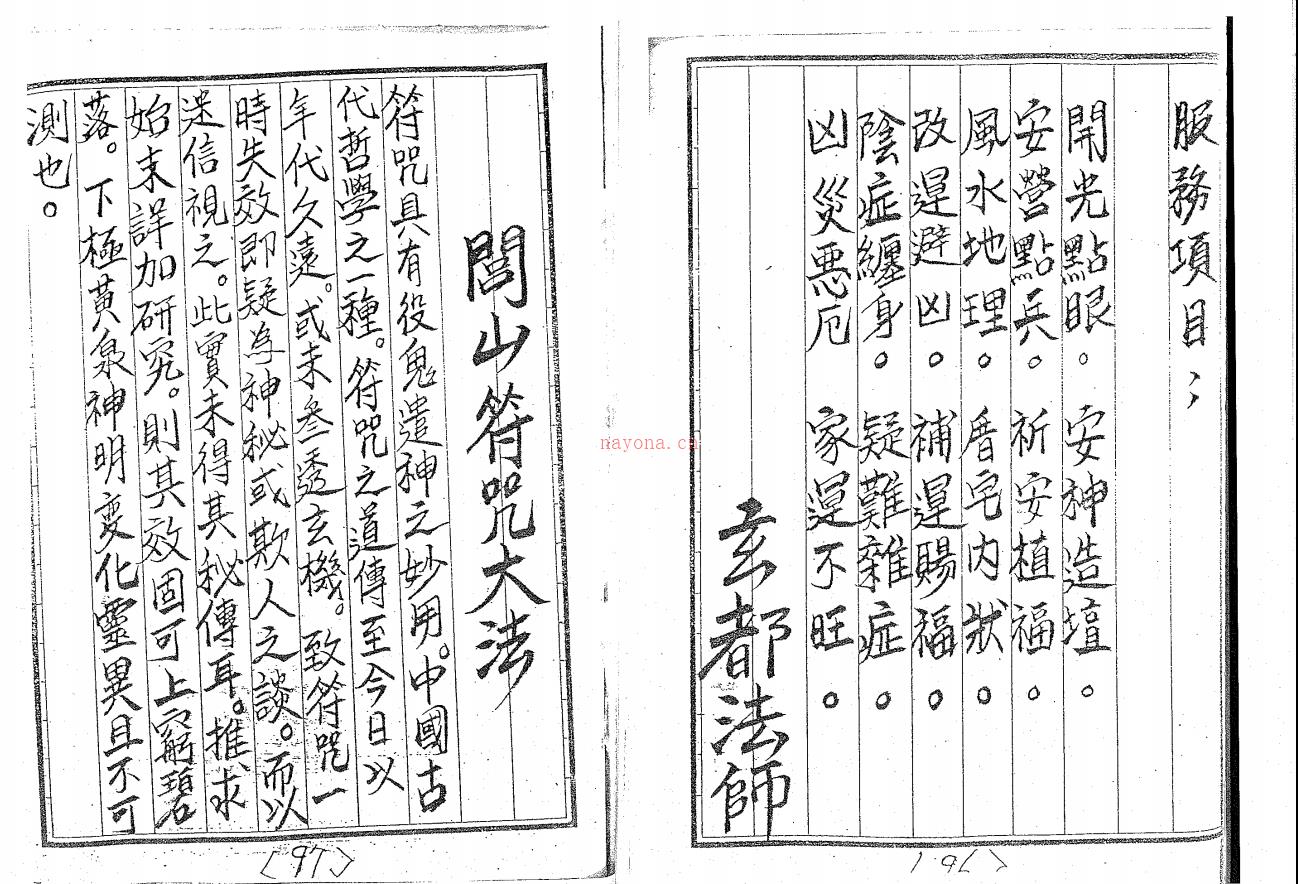 服務項目；
開光點眼。安神造壇。
安營點兵。祈安植福。
風水地理。厝宅內狀。
改運避凶。補運賜福。
陰症纏身。疑難雜症。
凶災惡厄 家運不旺。
玄都法師
〈96〉
閭山符咒大法
符咒具有役鬼遣神之妙用。中國古
代哲學之一種。符咒之道傳至今日以
年代久遠。或未叄透玄機。致符咒一
時失效即疑為神秘或欺人之談。而以
迷信視之。此實未得其秘傳耳。推求
始末詳加研究。則其效固可上窮碧
落。下極黃泉神明变化靈異且不可
測也。
〈97〉
nayona.cn